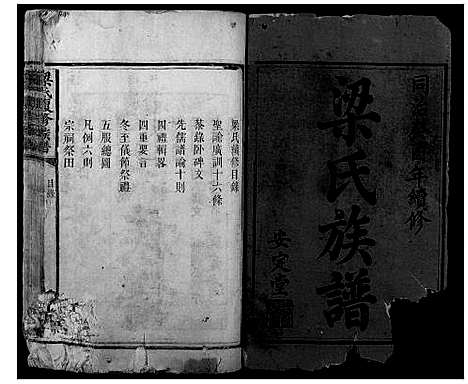 同
年續修
梁氏族譜
安定堂
梁氏續修目錄
聖諭廣訓十六條
茶錄卧碑文
先儒譜論十則
四禮輯畧
四重要言
冬至儀節祭禮
五服總圖
凡例六則
宗祠祭田
梁氏續修族譜
目錄